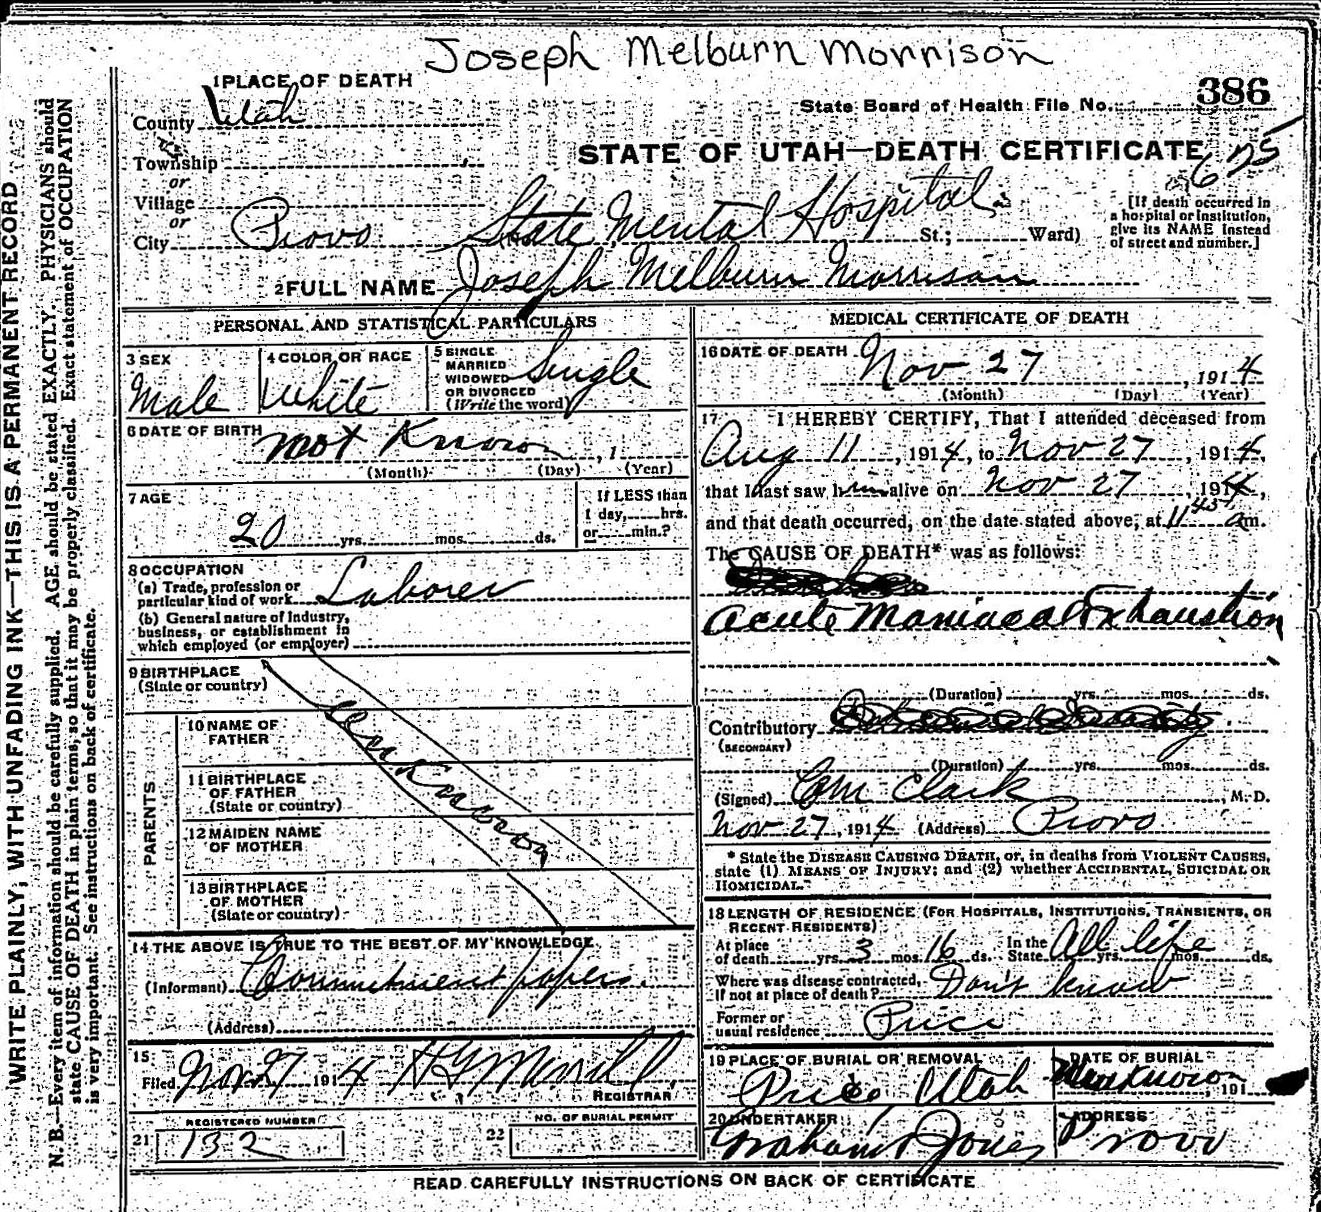 Joseph Melburn Morrison
1 PLACE OF DEATH
State Board of Health File No. 386
County Utah
STATE OF UTAH—DEATH CERTIFICATE
675
Township
or
Village
or
City Provo State Mental Hospital St.; Ward)
[If death occurred in
a hospital or institution,
give its NAME instead
of street and number.]
2 FULL NAME Joseph Melburn Morrison
PERSONAL AND STATISTICAL PARTICULARS
3 SEX
Male
4 COLOR OR RACE
White
5 SINGLE
MARRIED
WIDOWED
OR DIVORCED
(Write the word)
Single
6 DATE OF BIRTH
not Known , 1
(Month) (Day) (Year)
7 AGE
20 yrs. mos. ds.
If LESS than
1 day, hrs.
or min.?
8 OCCUPATION
(a) Trade, profession or
particular kind of work Laborer
(b) General nature of Industry,
business, or establishment in
which employed (or employer)
9 BIRTHPLACE
(State or country)
PARENTS
10 NAME OF
FATHER
11 BIRTHPLACE
OF FATHER
(State or country)
12 MAIDEN NAME
OF MOTHER
13 BIRTHPLACE
OF MOTHER
(State or country)
14 THE ABOVE IS TRUE TO THE BEST OF MY KNOWLEDGE
(Informant) Commitment papers.
(Address)
15
Filed Nov 27 1914 H G Merrill.
REGISTRAR
REGISTERED NUMBER
21 132
NO. OF BURIAL PERMIT
22
MEDICAL CERTIFICATE OF DEATH
16 DATE OF DEATH Nov 27 , 1914
(Month) (Day) (Year)
17 I HEREBY CERTIFY, That I attended deceased from
Aug 11 , 1914, to Nov 27 , 1914,
that I last saw him alive on Nov 27 , 1914,
and that death occurred, on the date stated above, at 11 45 am.
The CAUSE OF DEATH* was as follows:
Acute Maniacal Exhaustion
(Duration) yrs. mos. ds.
Contributory
(SECONDARY)
(Duration) yrs. mos. ds.
(Signed) Clark , M.D.
Nov 27, 1914 (Address) Provo
* State the DISEASE CAUSING DEATH, or, in deaths from VIOLENT CAUSES,
state (1) MEANS OF INJURY; and (2) whether ACCIDENTAL, SUICIDAL OR
HOMICIDAL.
18 LENGTH OF RESIDENCE (FOR HOSPITALS, INSTITUTIONS, TRANSIENTS, OR
RECENT RESIDENTS)
At place
of death yrs. 3 mos. 16 ds.
In the
State All life yrs. mos. ds.
Where was disease contracted,
if not at place of death? Don't know
Former or
usual residence Price
19 PLACE OF BURIAL OR REMOVAL
Price, Utah
DATE OF BURIAL
Unknown , 191
20 UNDERTAKER
Graham & Jones
ADDRESS
Provo
READ CAREFULLY INSTRUCTIONS ON BACK OF CERTIFICATE
WRITE PLAINLY, WITH UNFADING INK—THIS IS A PERMANENT RECORD
N. B.—Every item of information should be carefully supplied. AGE should be stated EXACTLY. PHYSICIANS should
state CAUSE OF DEATH in plain terms, so that it may be properly classified. Exact statement of OCCUPATION
is very important. See instructions on back of certificate.